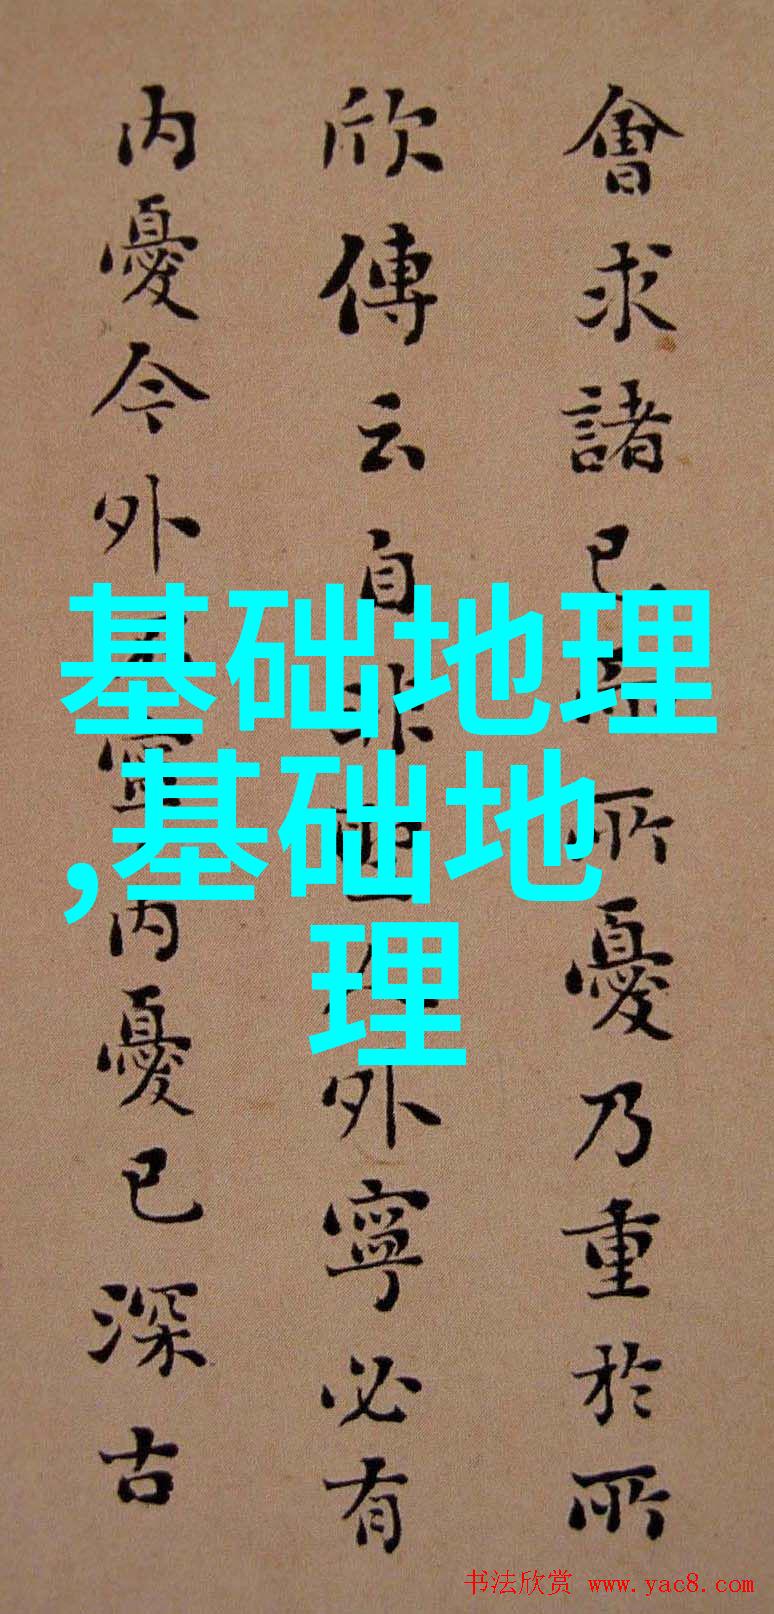 會求諸已所憂乃重於所
欣傳云自非外寧必有
内憂今外寧内憂已深古
基础地理
,基础地
理
书法欣赏 www.yac8.com